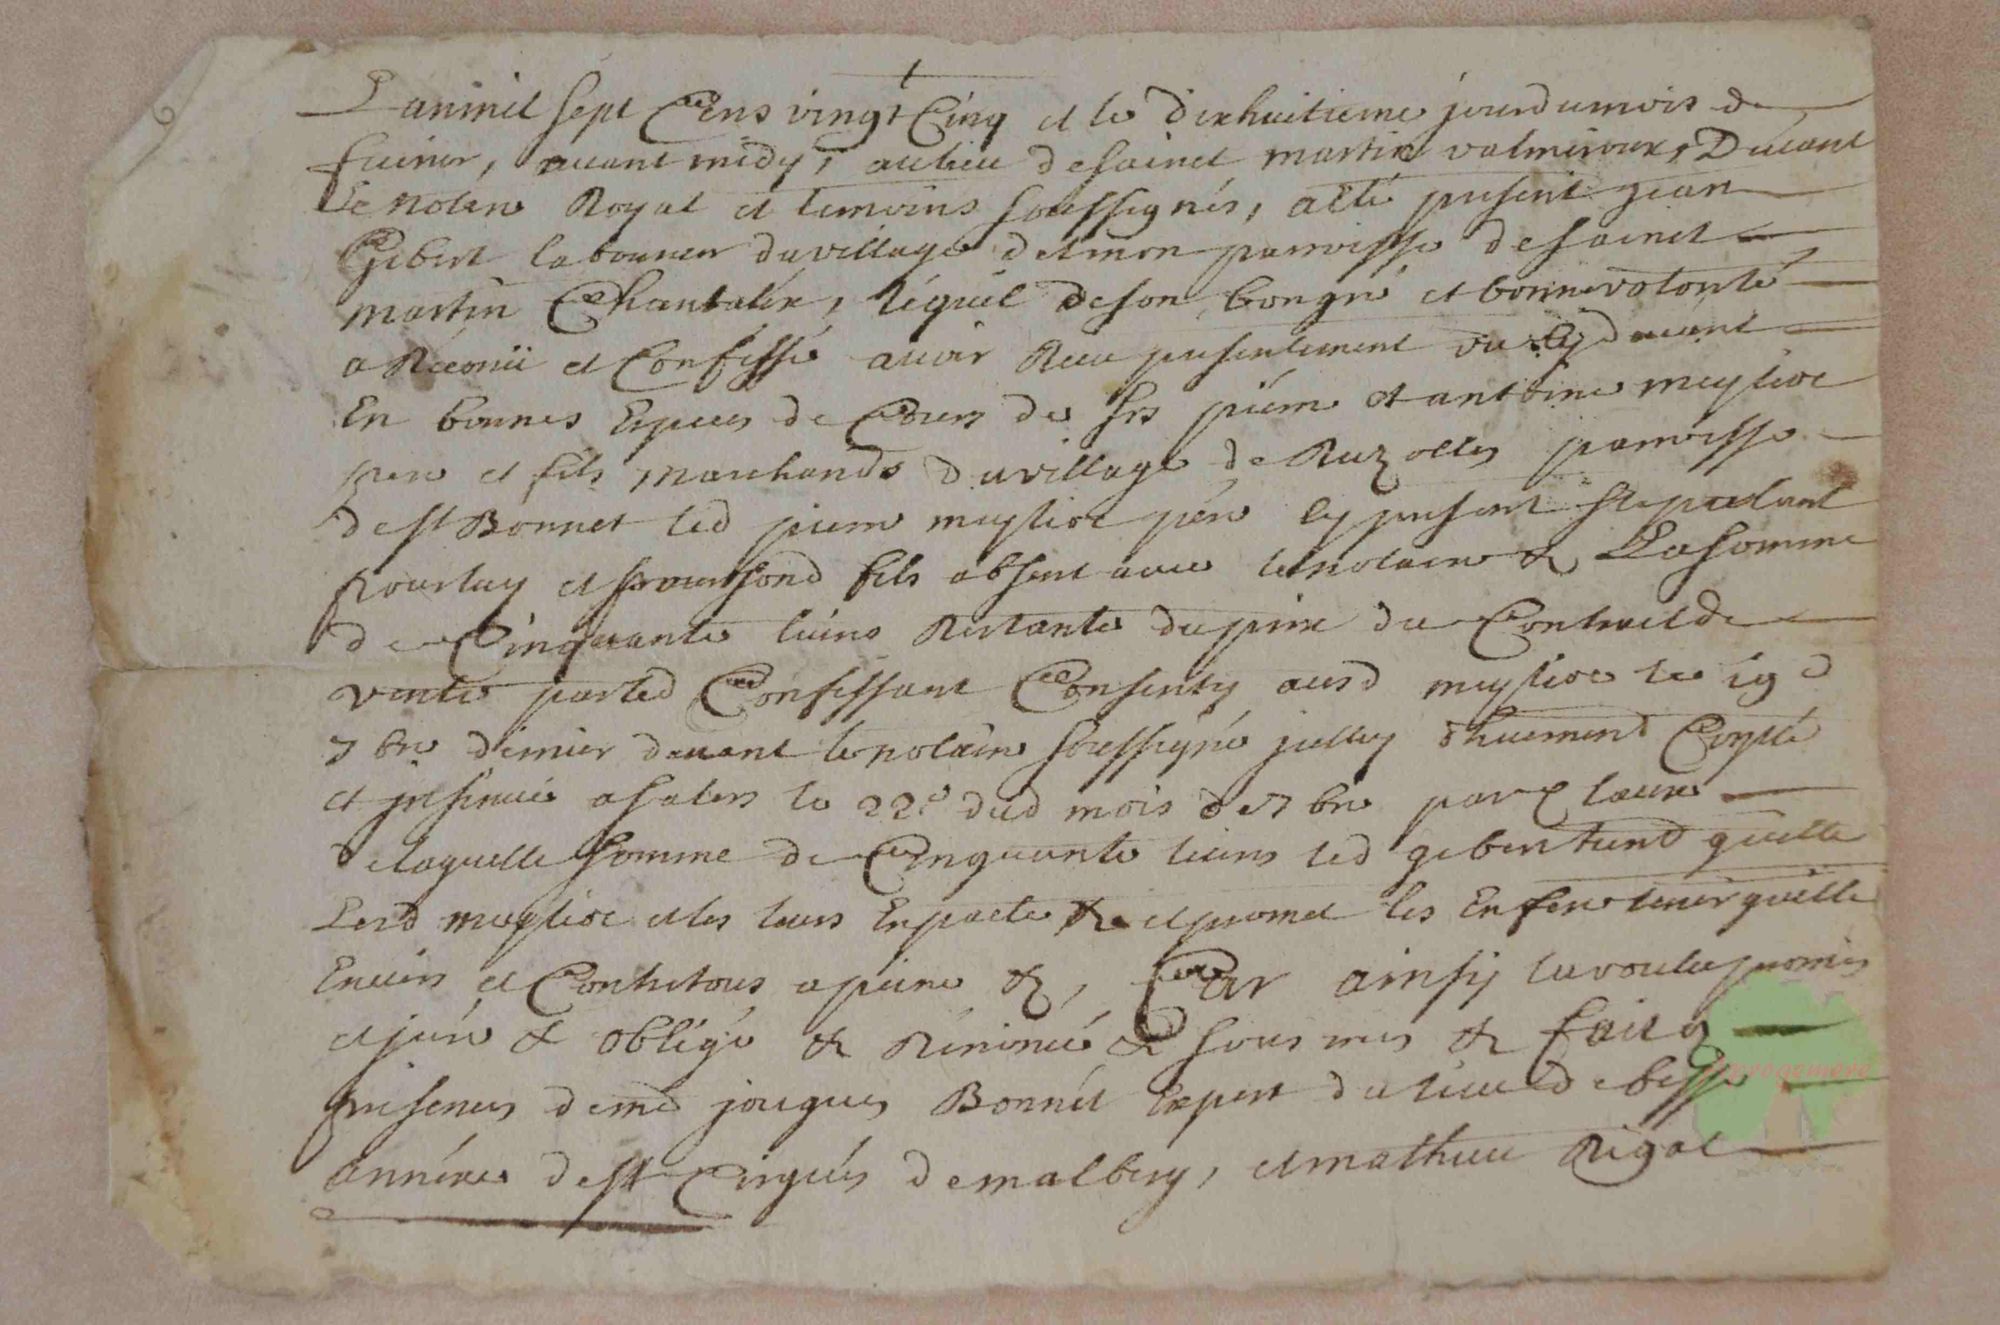 L'an mil sept Cens vingt Cinq et le dixhuitieme jour du mois de
feuvrier, avant midy, au lieu de sainct martin valmeroux, Devant
Le notere Royal et temoins soussignés, a esté present jean
Gibert laboureur du village de parroisse de sainct
martin Chantalés, léquel de son bon gré et bonne volonté
a Réconü et Confessé avoir Receu presentement ou cy devant
En bonnes Especes de Cours de srs pierre et antoine meyssioc
pere et fils marchands du village de Ruzolles parroisse
de st Bonnet led pierre meyssioc pere icy present stipulant
pour luy et pour sond fils absent avec le notaire & La somme
de Cinquante livres Restante du prix du Contract de
vente par led Confessant Consenty ausd meyssioc le 19e
7bre dernier devant le notaire soussigné Controllé
et insinué a salers le 22e dud mois de 7bre par
de laquelle somme de Cinquante livres led gibert tient quitte
Lesd meyssioc et les leurs En pacte & et promet les En fere tenir quitte
Envers et Contre tous a peine &, Car ainsy l'a voulu promis
et juré & obligé & Rénoncé & sousmis & fait
presences de me jacques Bonnét Expert du lieu de besse
annéxe de st Cirgués de malbery, et mathieu Rigal